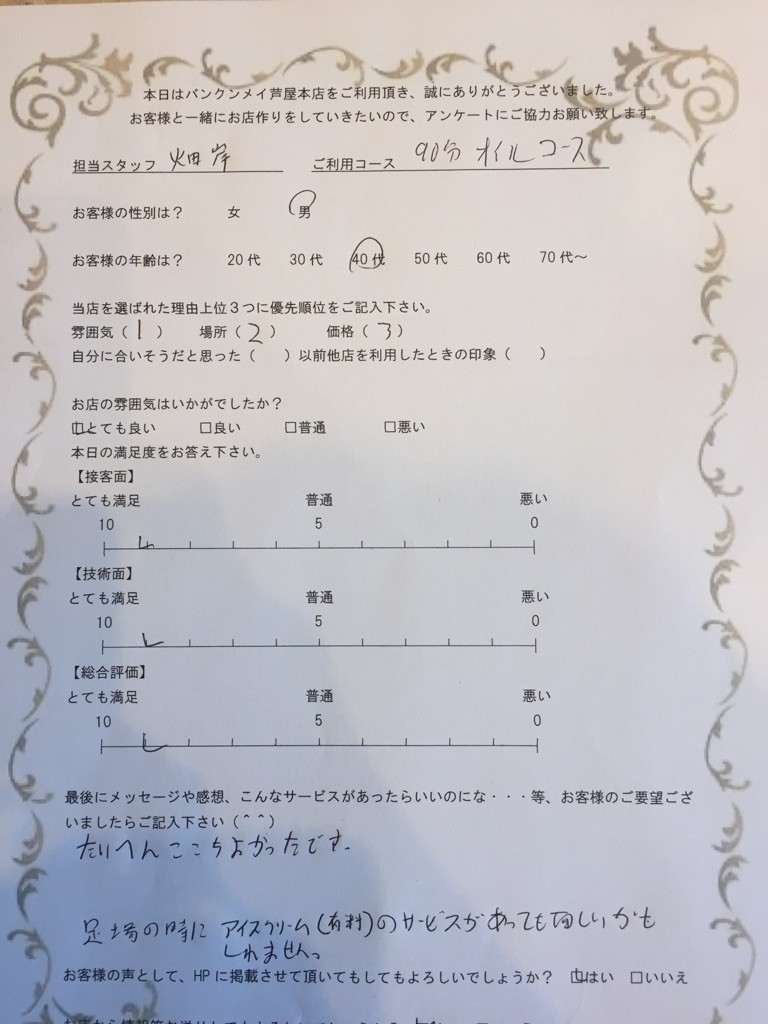 本日はバンクンメイ芦屋本店をご利用頂き、誠にありがとうございました。
お客様と一緒にお店作りをしていきたいので、アンケートにご協力お願い致します。
担当スタッフ 畑岸 ご利用コース 90分 オイルコース
お客様の性別は？ 女 男
お客様の年齢は？ 20代 30代 40代 50代 60代 70代～
当店を選ばれた理由上位３つに優先順位をご記入下さい。
雰囲気（ 1 ） 場所（ 2 ） 価格（ 3 ）
自分に合いそうだと思った（ ）以前他店を利用したときの印象（ ）
お店の雰囲気はいかがでしたか？
☑とても良い □良い □普通 □悪い
本日の満足度をお答え下さい。
【接客面】
とても満足 普通 悪い
10 5 0
【技術面】
とても満足 普通 悪い
10 5 0
【総合評価】
とても満足 普通 悪い
10 5 0
最後にメッセージや感想、こんなサービスがあったらいいのにな・・・等、お客様のご要望ござ
いましたらご記入下さい（＾＾）
たいへんここちよかったです。
足場の時に アイスクリーム(有料)のサービスがあっても面しいかも
しれません。
お客様の声として、HPに掲載させて頂いてもしてもよろしいでしょうか？ ☑はい □いいえ